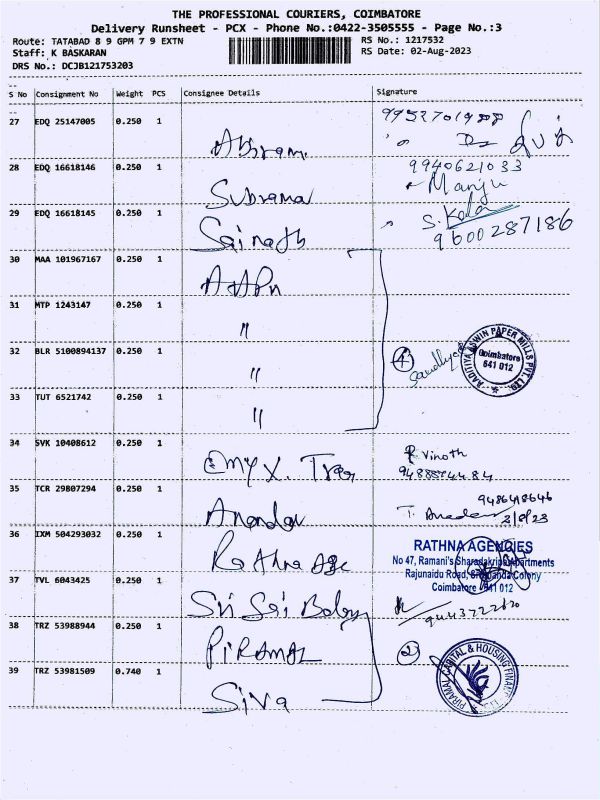 THE PROFESSIONAL COURIERS, COIMBATORE
Delivery Runsheet - PCX - Phone No.:0422-3505555 - Page No.:3
Route: TATABAD 8 9 GPM 7 9 EXTN RS No.: 1217532
Staff: K BASKARAN RS Date: 02-Aug-2023
DRS No.: DCJB121753203
S No Consignment No Weight PCS Consignee Details Signature
27 EDQ 25147005 0.250 1
28 EDQ 16618146 0.250 1 Subrama 9940621033
Manju
29 EDQ 16618145 0.250 1 Sainath S. Kala
9600287186
30 MAA 101967167 0.250 1
31 MTP 1243147 0.250 1 "
32 BLR 5100894137 0.250 1 " 4 Sandhya AADITIYA ASWIN PAPER MILLS PVT. LTD. Coimbatore 641 012
33 TUT 6521742 0.250 1 "
34 SVK 10408612 0.250 1 Vinoth
35 TCR 29807294 0.250 1 9486418646
2/8/23
36 IXM 504293032 0.250 1 Rathna Age RATHNA AGENCIES
No 47, Ramani's Apartments
Rajunaidu Road, Colony
Coimbatore - 641 012
37 TVL 6043425 0.250 1 Sri Sai Balaji
38 TRZ 53988944 0.250 1 PIRAMAL 2 PIRAMAL CAPITAL & HOUSING FINANCE
39 TRZ 53981509 0.740 1 Siva